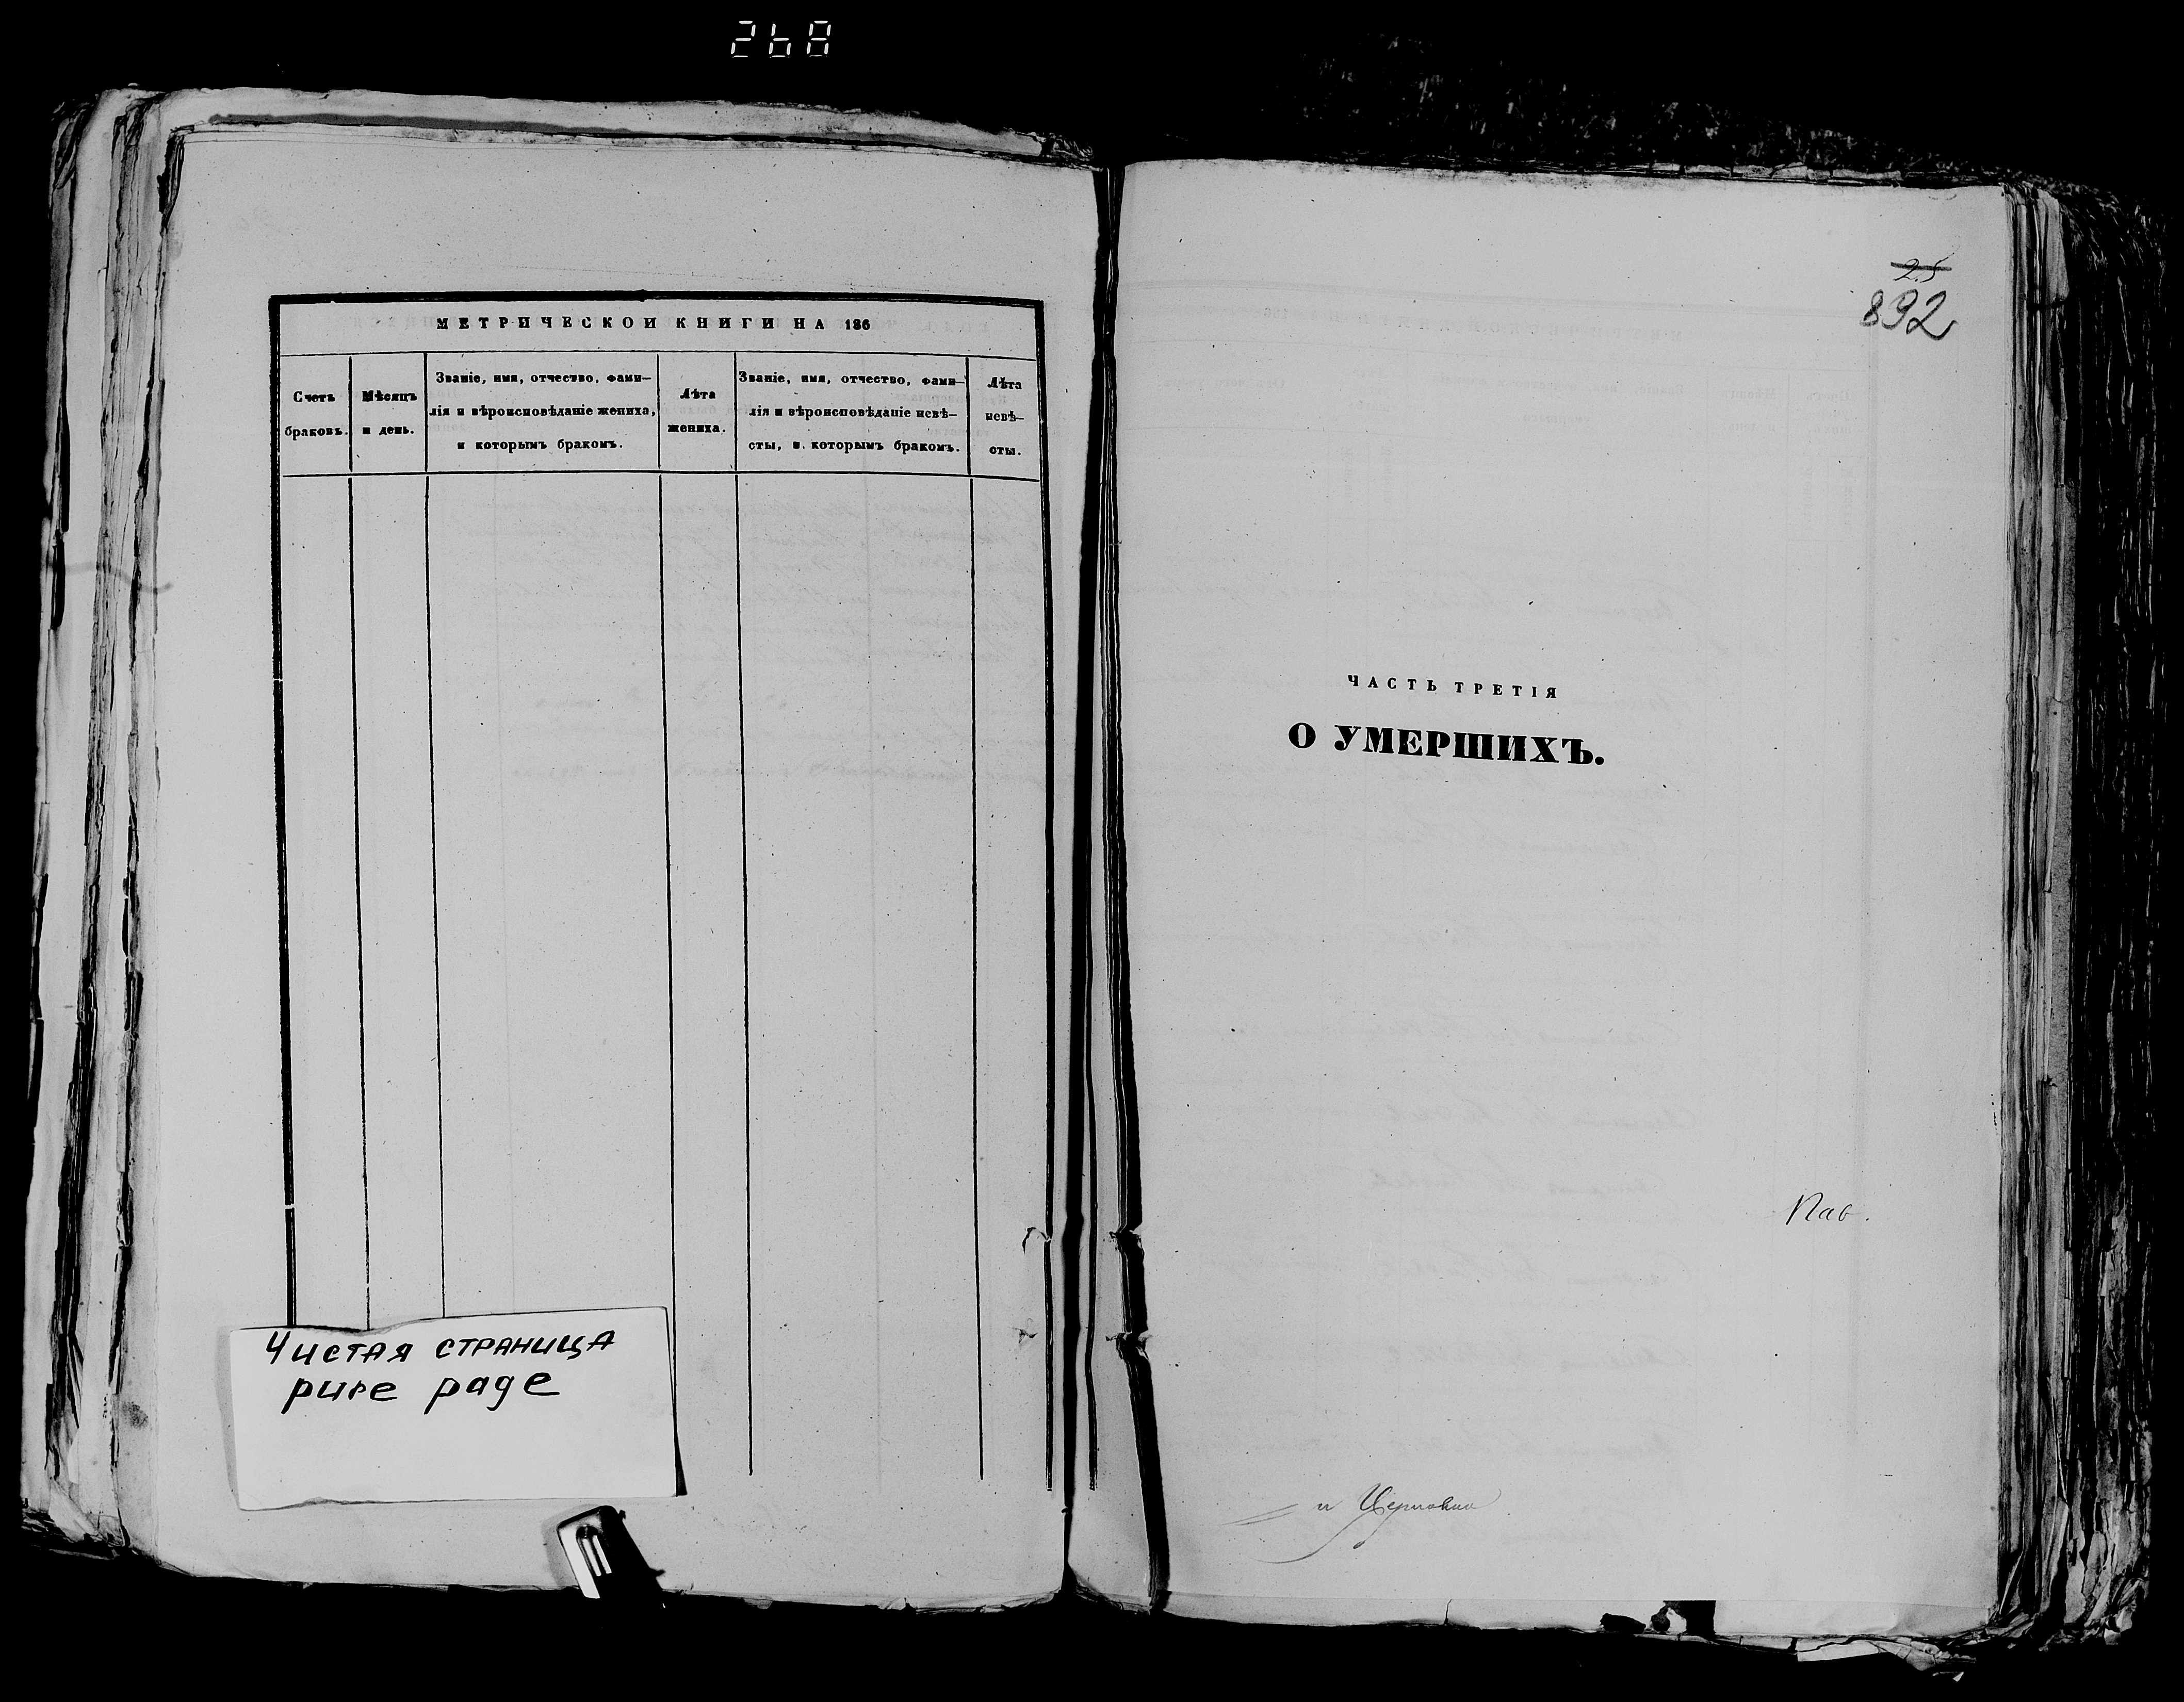 268
МЕТРИЧЕСКОЙ КНИГИ НА 186
Счетъ
браковъ.
Мѣсяцъ
и день.
Званіе, имя, отчество, фами-
лія и вѣроисповѣданіе жениха,
и которымъ бракомъ.
Лѣта
жениха.
Званіе, имя, отчество, фами-
лія и вѣроисповѣданіе невѣ-
сты, и которымъ бракомъ.
Лѣта
невѣ-
сты.
Чистая страница
pure page
25
892
ЧАСТЬ ТРЕТІЯ
О УМЕРШИХЪ.
Пав.
и Церковно